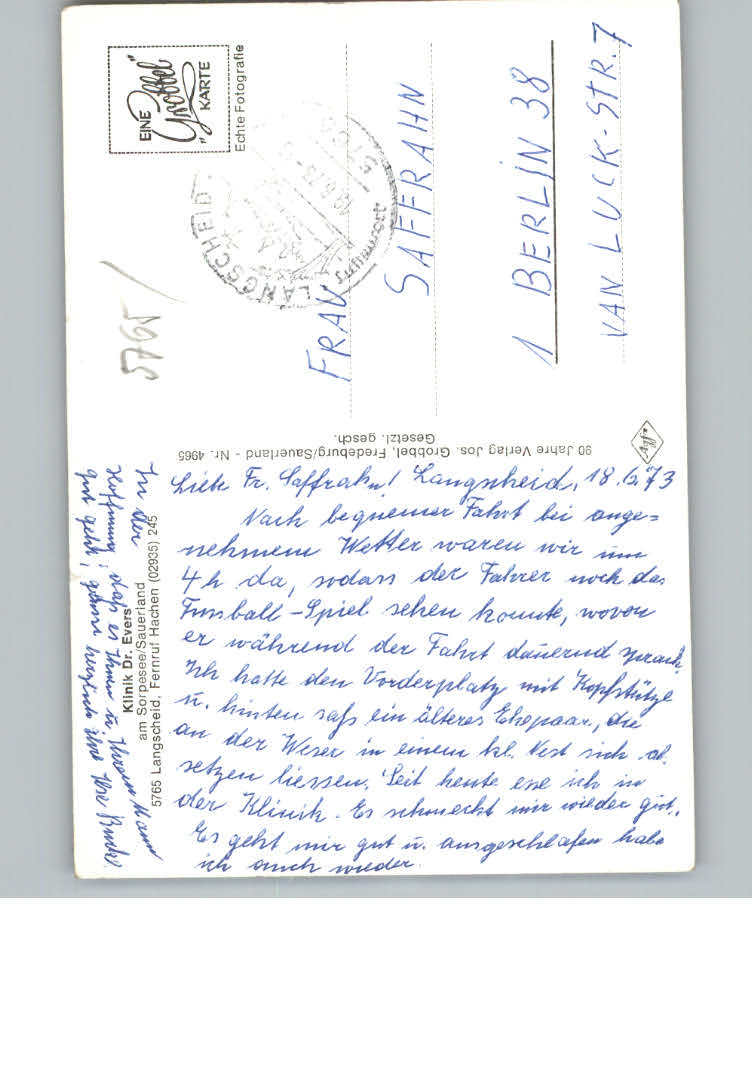 Liebe Fr. Saffrahn! Langscheid, 18.6.73
Nach bequemer Fahrt bei ange=
nehmem Wetter waren wir um
4 h da, sodass der Fahrer noch das
Fussball-Spiel sehen konnte, wovon
er während der Fahrt dauernd sprach.
Ich hatte den Vorderplatz mit Kopfstütze
u. hinten saß ein älteres Ehepaar, die
an der Weser in einem kl. Nest sich ab=
setzen liessen. Seit heute esse ich in
der Klinik. Es schmeckt mir wieder gut.
Es geht mir gut u. ausgeschlafen habe
ich auch wieder.
In der
Hoffnung, daß es Ihnen u. Ihrem Mann
gut geht, grüsst herzlich Ihre
Klinik Dr. Evers
am Sorpesee/Sauerland
5765 Langscheid, Fernruf Hachen (02935) 245
90 Jahre Verlag Jos. Grobbel, Fredeburg/Sauerland - Nr. 4965
Gesetzl. gesch.
Agfa
5765
EINE
"Grobbel"
KARTE
Echte Fotografie
LANGSCHEID
5765
Luftkurort
FRAU
SAFFRAHN
1 BERLIN 38
VAN LUCK-STR. 7